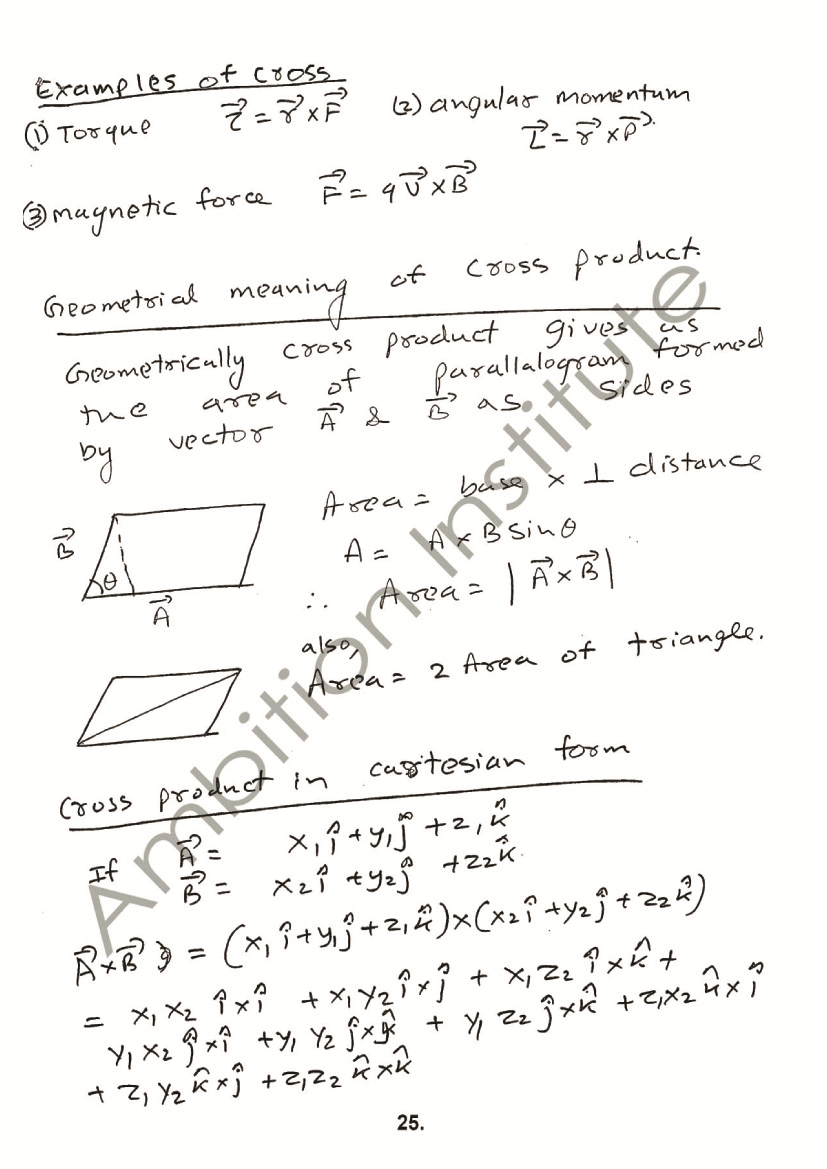 Examples of Cross
(1) Torque τ⃗ = r⃗ × F⃗ (2) angular momentum
L⃗ = r⃗ × P⃗.
(3) magnetic force F⃗ = q v⃗ × B⃗
Geometrial meaning of Cross product.
Geometrically cross product gives as
the area of parallalogram formed
by vector A⃗ & B⃗ as sides
Area = base × ⊥ distance
A = A × B Sinθ
∴ Area = |A⃗ × B⃗|
B⃗
θ
A⃗
also,
Area = 2 Area of triangle.
Cross product in cartesian form
If A⃗ = x₁î + y₁ĵ + z₁k̂
B⃗ = x₂î + y₂ĵ + z₂k̂.
A⃗×B⃗ = (x₁î + y₁ĵ + z₁k̂) × (x₂î + y₂ĵ + z₂k̂)
= x₁x₂ î×î + x₁y₂ î×ĵ + x₁z₂ î×k̂ +
y₁x₂ ĵ×î + y₁y₂ ĵ× + y₁z₂ ĵ×k̂ + z₁x₂ k̂×î
+ z₁y₂ k̂×ĵ + z₁z₂ k̂×k̂
25.
Ambition Institute